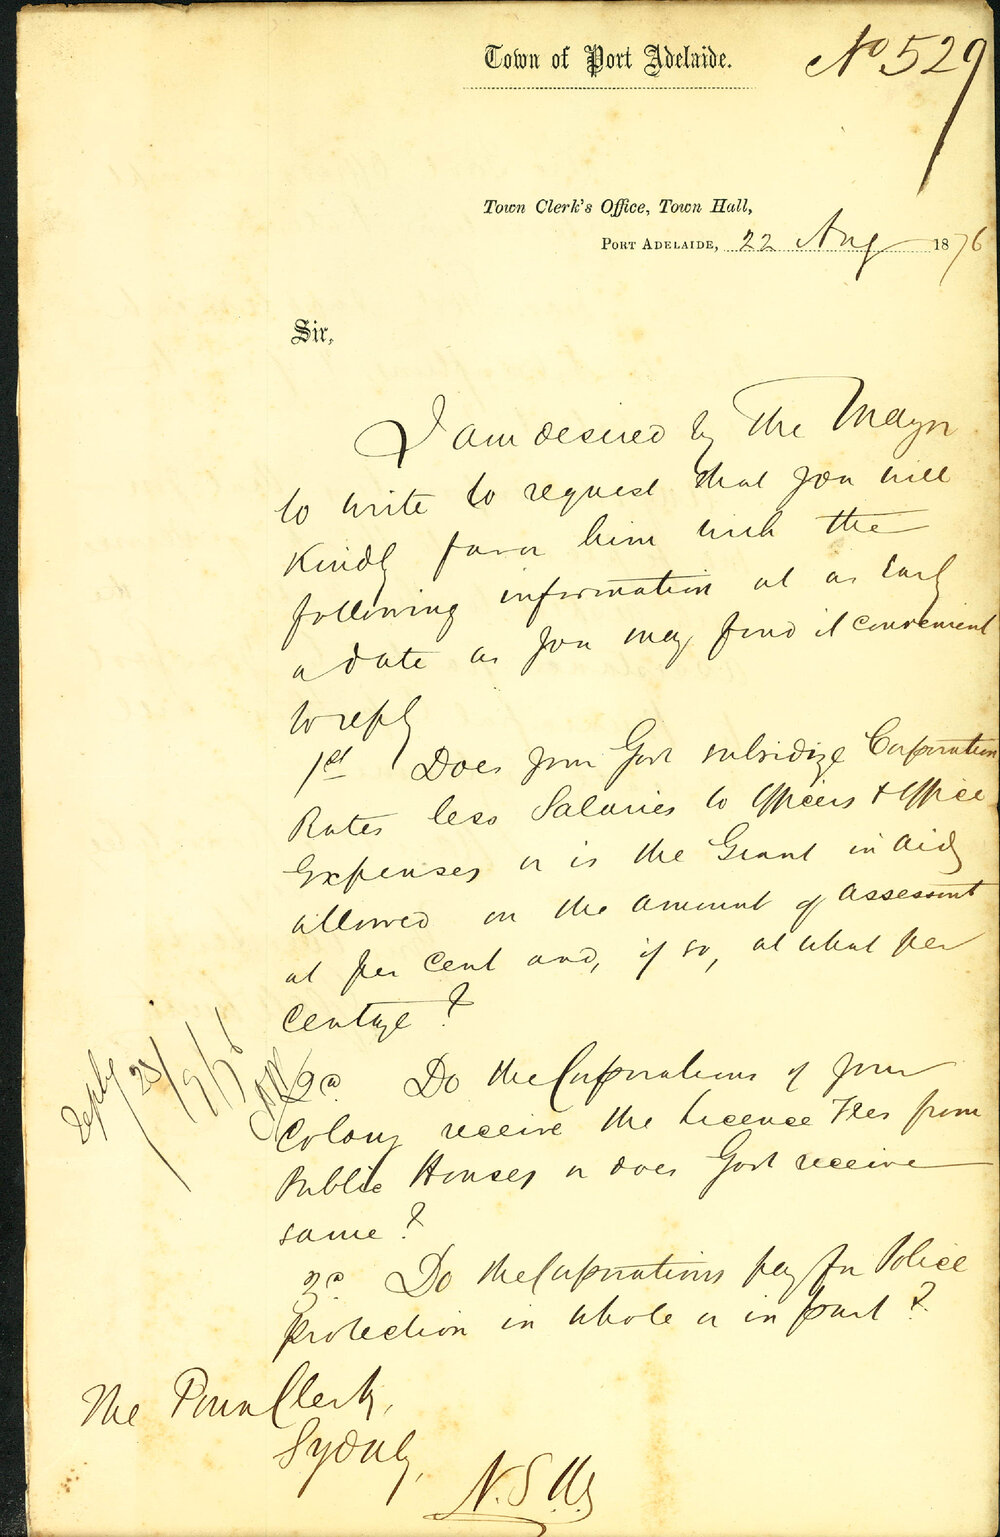 Town of Port Adelaide.
No 529
Town Clerk's Office, Town Hall,
PORT ADELAIDE, 22 Aug 1876
Sir,
I am desired by The Mayor
to write to request that you will
Kindly favor him with the
following information at as Early
a date as you may find it convenient
to reply
1st Does your Govt subsidize Corporation
Rates less Salaries to Officers & Office
Expenses or is the Grant in aid
allowed on the amount of assessmt
at per Cent and, if so, at what per
Centage?
2d Do the Corporations of your
Colony receive the Licence Fees from
Public Houses or does Govt receive
same?
3d Do the Corporations pay for Police
Protection in whole or in part?
reply 23/9/76
The Town Clerk,
Sydney,
N.S.W.